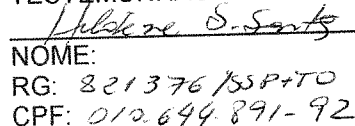 TESTEMUNHA
Hildene S. Santos
NOME:
RG: 821376/SSP-TO
CPF: 010.644.891-92